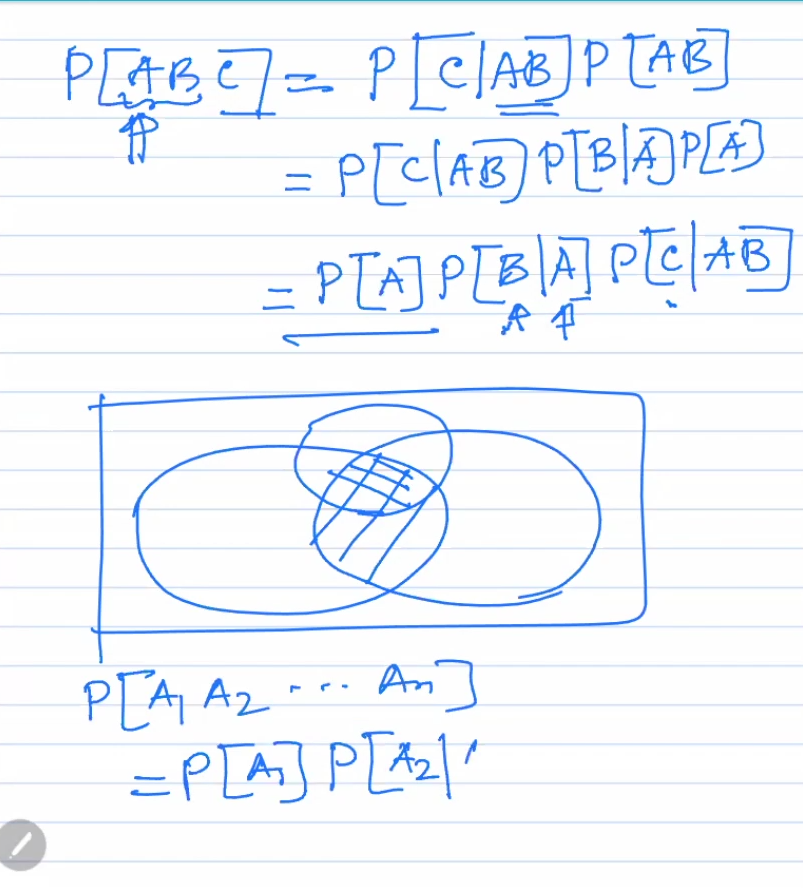 P[ABC] = P[C|AB] P[AB]
= P[C|AB] P[B|A] P[A]
= P[A] P[B|A] P[C|AB]
P[A₁ A₂ ... Aₙ]
= P[A₁] P[A₂|